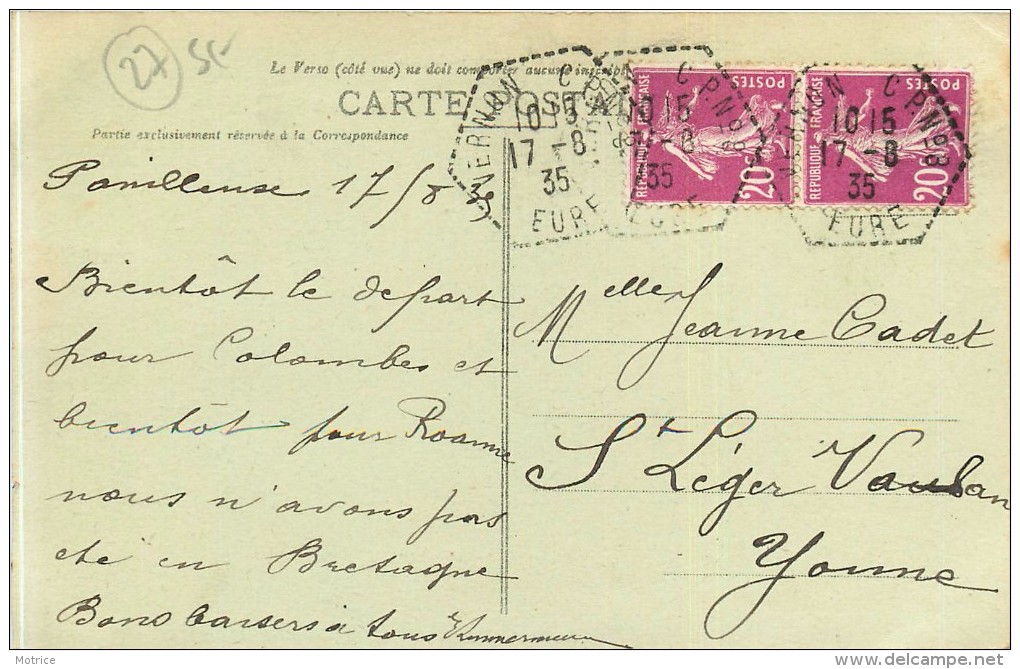 27
Le Verso (côté vue) ne doit comporter aucune
CARTE POSTA
Partie exclusivement réservée à la Correspondance
VERNON C P. No 3
10 15
17 - 8
35
EURE
VERNON C P. No 3
10 15
17 - 8
35
EURE
POSTES
REPUBLIQUE FRANÇAISE
20c
POSTES
REPUBLIQUE FRANÇAISE
20c
Panilleuse 17/8 35
Bientôt le depart
pour Colombes et
bientôt pour Roanne
nous n'avons pas
eté en Bretagne
Bons baisers à tous
Melle Jeanne Cadet
St Léger Vauban
Yonne
Motrice
www.delcampe.net